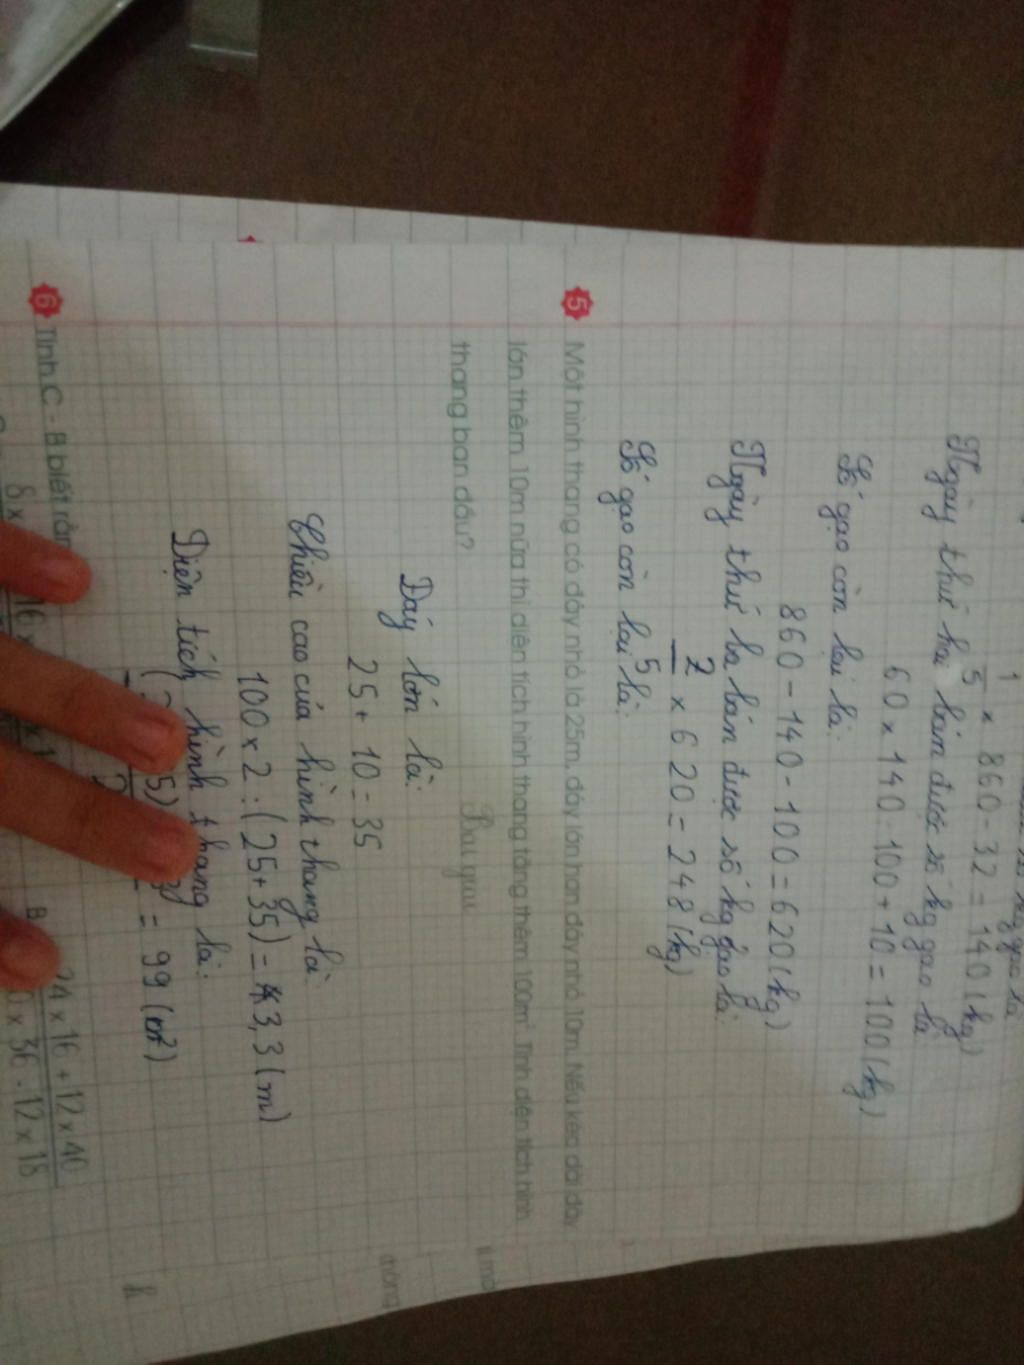 1/5 × 860 - 32 = 140 (kg)
Ngày thứ hai bán được số kg gạo là
60 × 140 : 100 + 10 = 100 (kg)
Số gạo còn lại là:
860 - 140 - 100 = 620 (kg)
Ngày thứ ba bán được số kg gạo là:
2/5 × 620 = 248 (kg)
Số gạo còn lại là:
5 Một hình thang có đáy nhỏ là 25m, đáy lớn hơn đáy nhỏ 10m. Nếu kéo dài đáy
lớn thêm 10m nữa thì diện tích hình thang tăng thêm 100m². Tính diện tích hình
thang ban đầu?
Bài giải
Đáy lớn là:
25 + 10 = 35
Chiều cao của hình thang là:
100 × 2 : (25 + 35) = 3,3 (m)
Diện tích hình thang là:
= 99 (m²)
6 Tính C - B biết
8 × 16
B 24 × 16 + 12 × 40
× 36 - 12 × 18